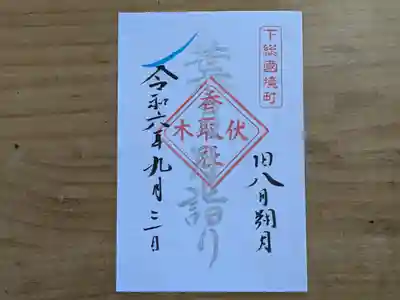 下総國境町
旧八月朔月
詣り
伏木
香取社
令和六年九月三日